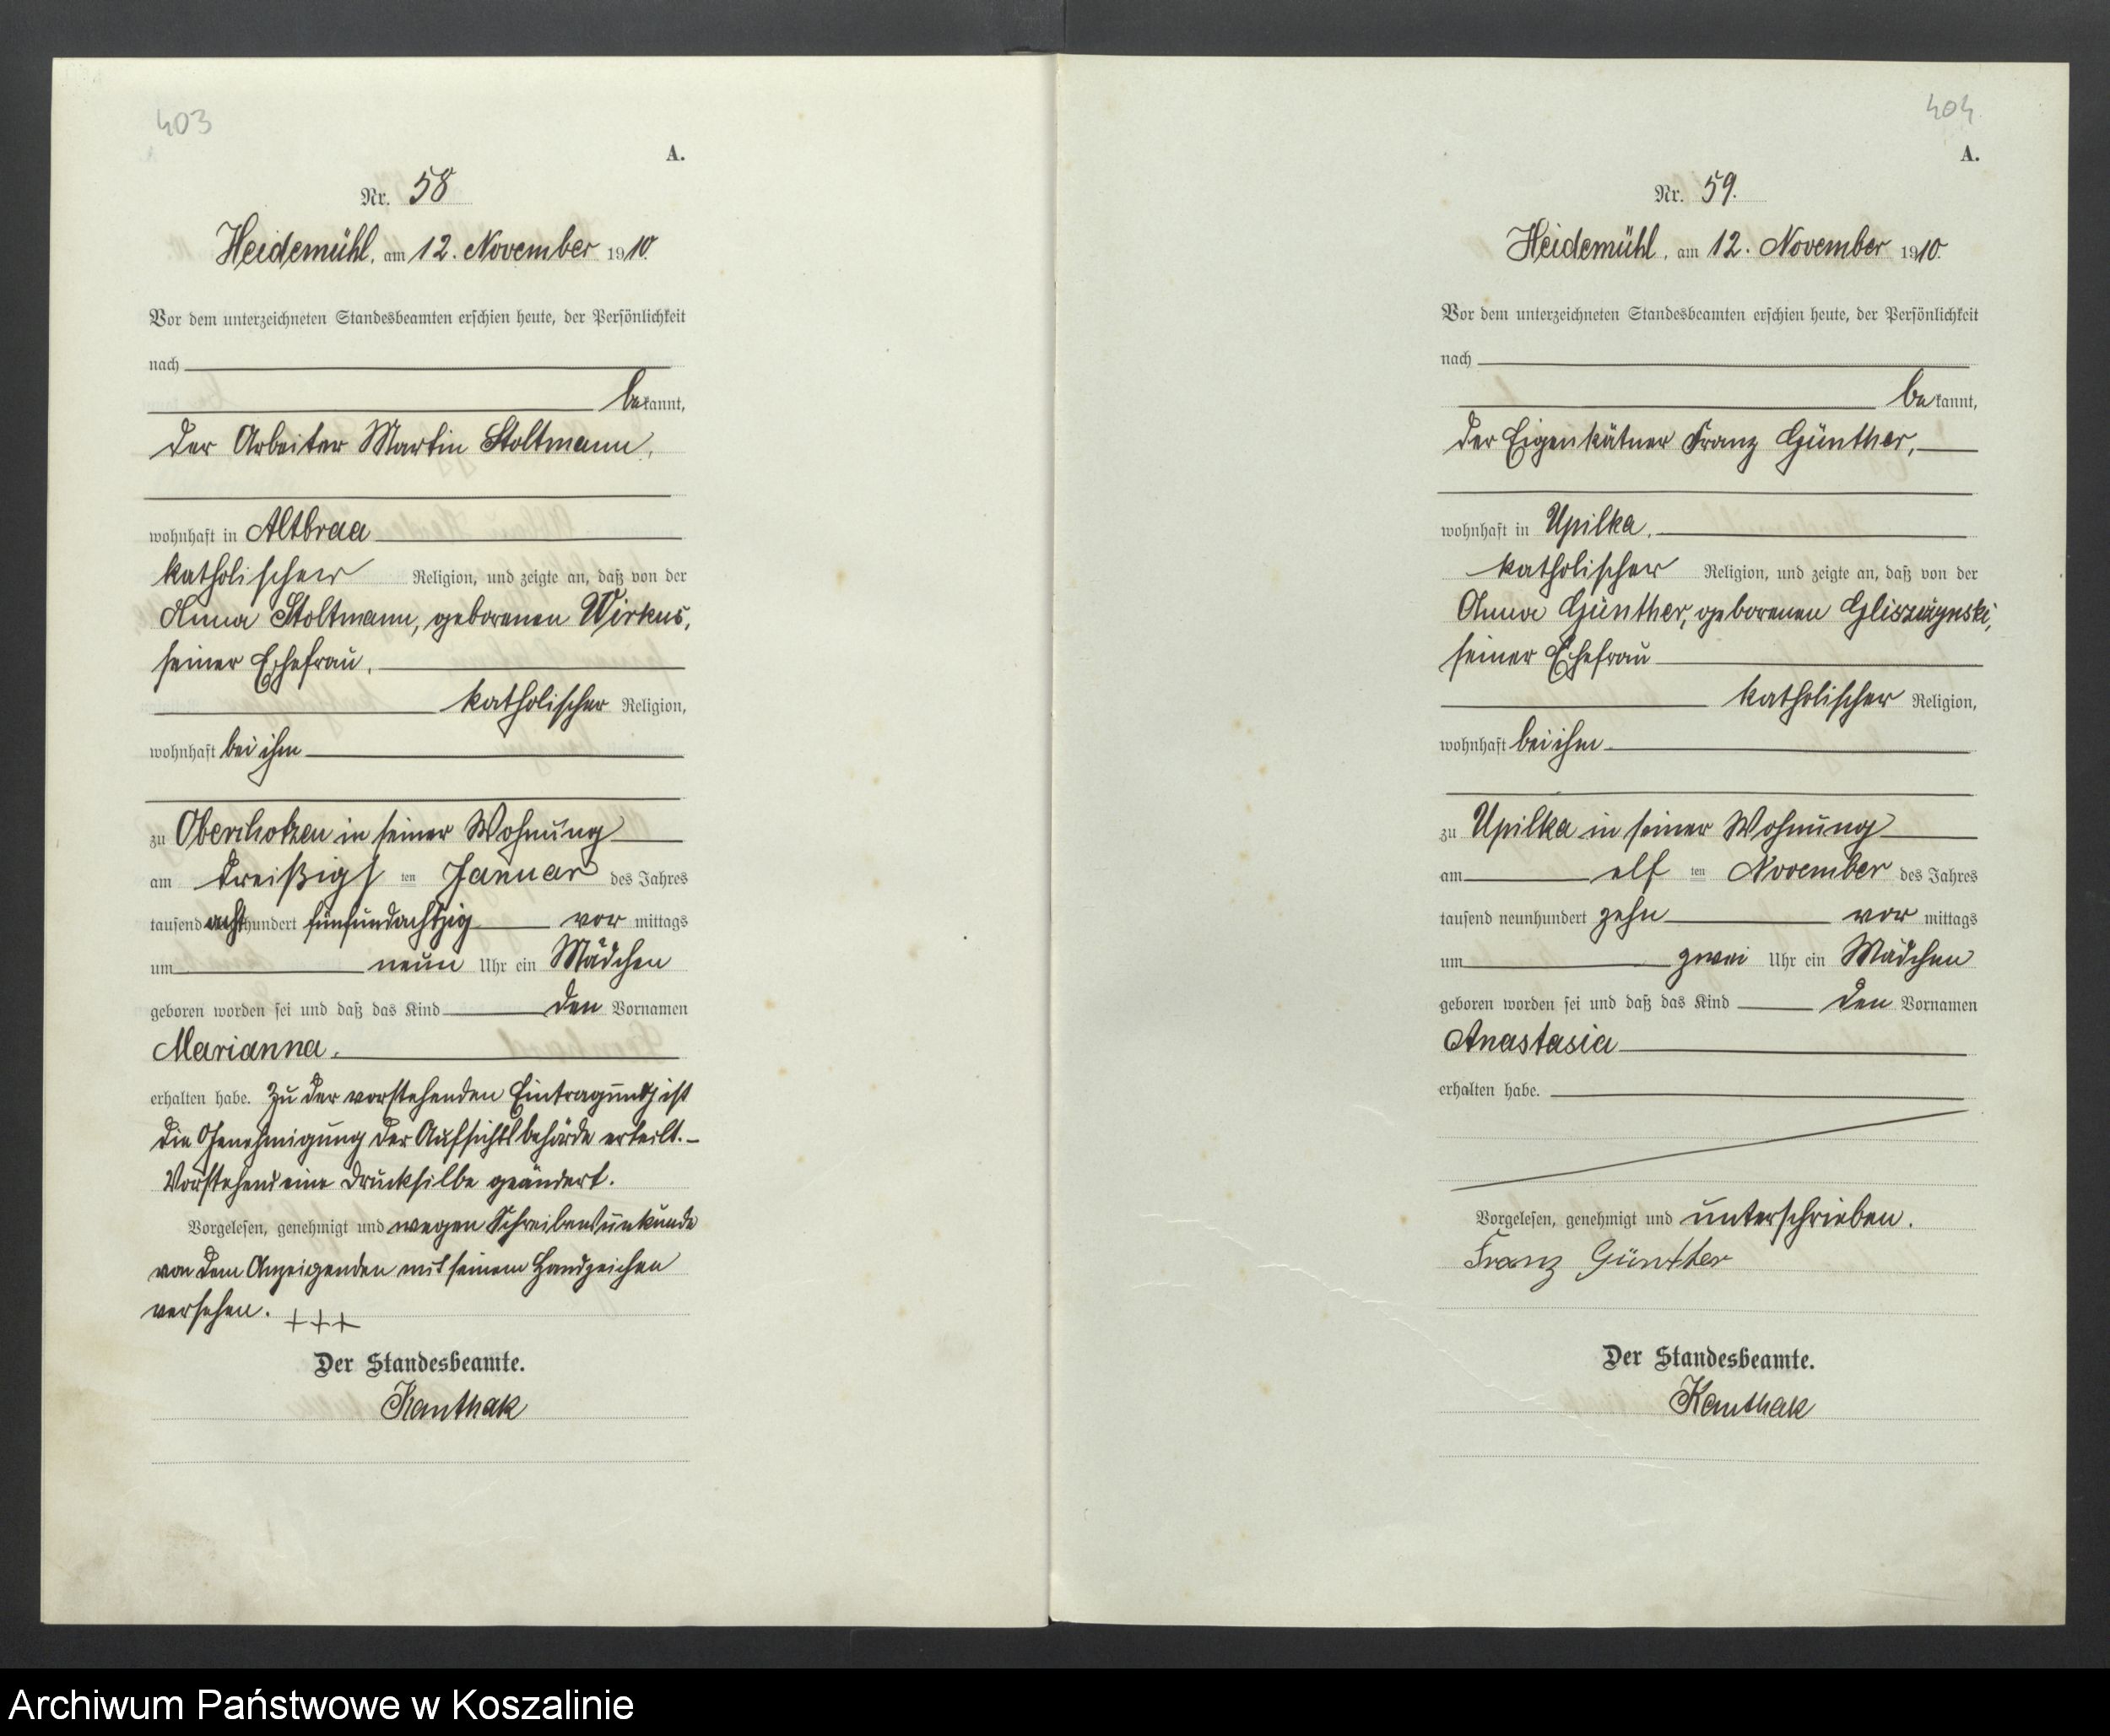 403
A.
Nr. 58
Heidemühl, am 12. November 1910.
Vor dem unterzeichneten Standesbeamten erschien heute, der Persönlichkeit
nach
bekannt,
der Arbeiter Martin Stoltmann,
wohnhaft in Altbraa
katholischer Religion, und zeigte an, daß von der
Anna Stoltmann, geborenen Wirkus,
seiner Ehefrau,
katholischer Religion,
wohnhaft bei ihm
zu in seiner Wohnung
am dreißigsten Januar des Jahres
tausend achthundert fünfundachtzig vor mittags
um neun Uhr ein Mädchen
geboren worden sei und daß das Kind den Vornamen
Marianna.
erhalten habe. Zu der vorstehenden Eintragung ist
die Genehmigung der Aufsichtsbehörde erteilt.–
Vorstehend eine Drucksilbe geändert.
Vorgelesen, genehmigt und wegen Schreibensunkunde
von dem Anzeigenden mit seinem Handzeichen
versehen. +++
Der Standesbeamte.
Kanthak
404
A.
Nr. 59.
Heidemühl, am 12. November 1910.
Vor dem unterzeichneten Standesbeamten erschien heute, der Persönlichkeit
nach
bekannt,
der Eigenkätner Franz Günther,
wohnhaft in Upilka,
katholischer Religion, und zeigte an, daß von der
Anna Günther, geborenen Gliszczynski,
seiner Ehefrau
katholischer Religion,
wohnhaft bei ihm
zu Upilka in seiner Wohnung
am elf ten November des Jahres
tausend neunhundert zehn vor mittags
um zwei Uhr ein Mädchen
geboren worden sei und daß das Kind den Vornamen
Anastasia
erhalten habe.
Vorgelesen, genehmigt und unterschrieben.
Franz Günther
Der Standesbeamte.
Kanthak
Archiwum Państwowe w Koszalinie